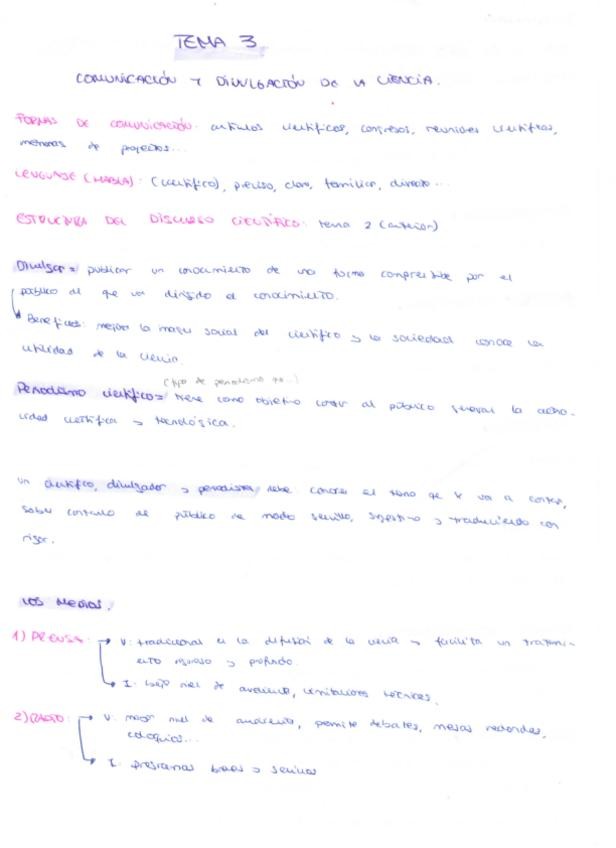 TEMA 3.
COMUNICACIÓN Y DIVULGACIÓN DE LA CIENCIA.
FORMAS DE COMUNICACIÓN: artículos científicos, congresos, reuniones científicas,
memorias de proyectos...
LENGUAJE (HABLA): (científico), preciso, claro, familiar, directo...
ESTRUCTURA DEL DISCURSO CIENTÍFICO: tema 2 (anterior)
Divulgar = publicar un conocimiento de una forma comprensible por el
público al que va dirigido el conocimiento.
Beneficios: mejora la imagen social del científico y la sociedad conoce la
utilidad de la ciencia.
(tipo de periodismo que...)
Periodismo científico = tiene como objetivo contar al público general la actua-
lidad científica y tecnológica.
Un científico, divulgador y periodista, debe conocer el tema que le va a contar,
saber contarlo al público de modo sencillo, sugestivo y traduciendo con
rigor.
LOS MEDIOS.
1) PRENSA: V: tradicional en la difusión de la ciencia y facilita un tratami-
ento riguroso y profundo.
I: bajo nivel de audiencia, limitaciones técnicas.
2) RADIO: V: mayor nivel de audiencia, permite debates, mesas redondas,
coloquios...
I: programas breves y sencillos